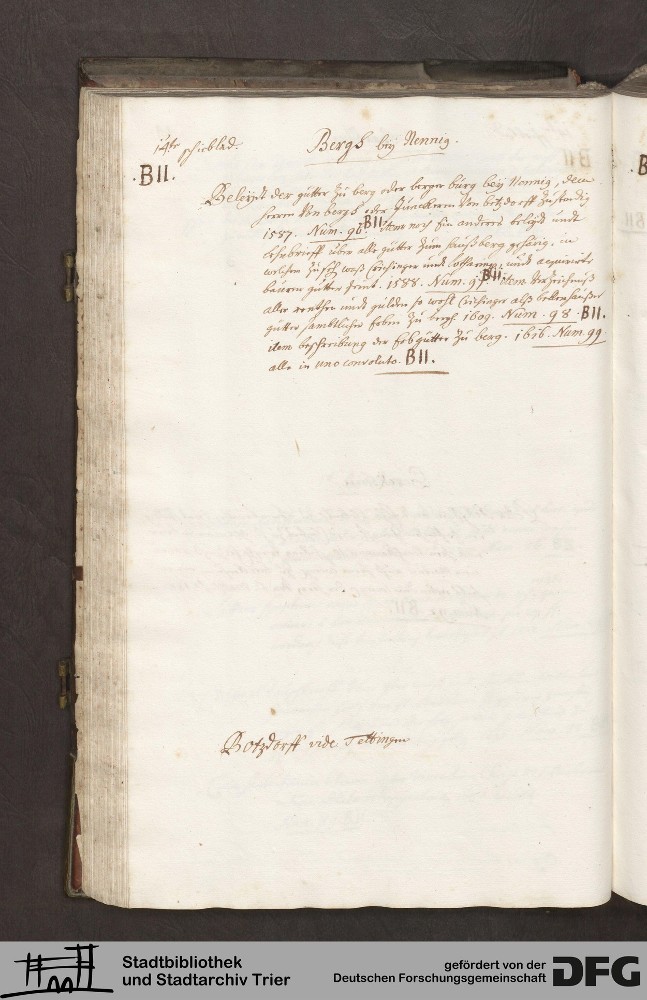 14te schieblad.
Bergh beÿ Nennig.
B II.
Beleÿdt der gütter zu berg oder berger burg beÿ Nennig, dem
herren von bergh oder Junckeren von botzdorff zustendig
1587. Num. 96 B II. item noch ein anderes beleyd undt
lehnbrieff über alle gütter zum hauß berg gehörig, in
welchen Criechinger undt undt acquirirte
bauren gütter seint. 1588. Num. 97. B II. item Verzeichnuß
aller renthen undt gülden so wohl Crichinger alß
gütter samtlicher Erben zu bergh 1609. Num. 98. B II.
item beschreibung der Erbgütter zu berg. 1616. Num. 99.
alle in uno convoluto. B II.
Botzdorff vide Tettingen
Stadtbibliothek
und Stadtarchiv Trier
gefördert von der
Deutschen Forschungsgemeinschaft
DFG